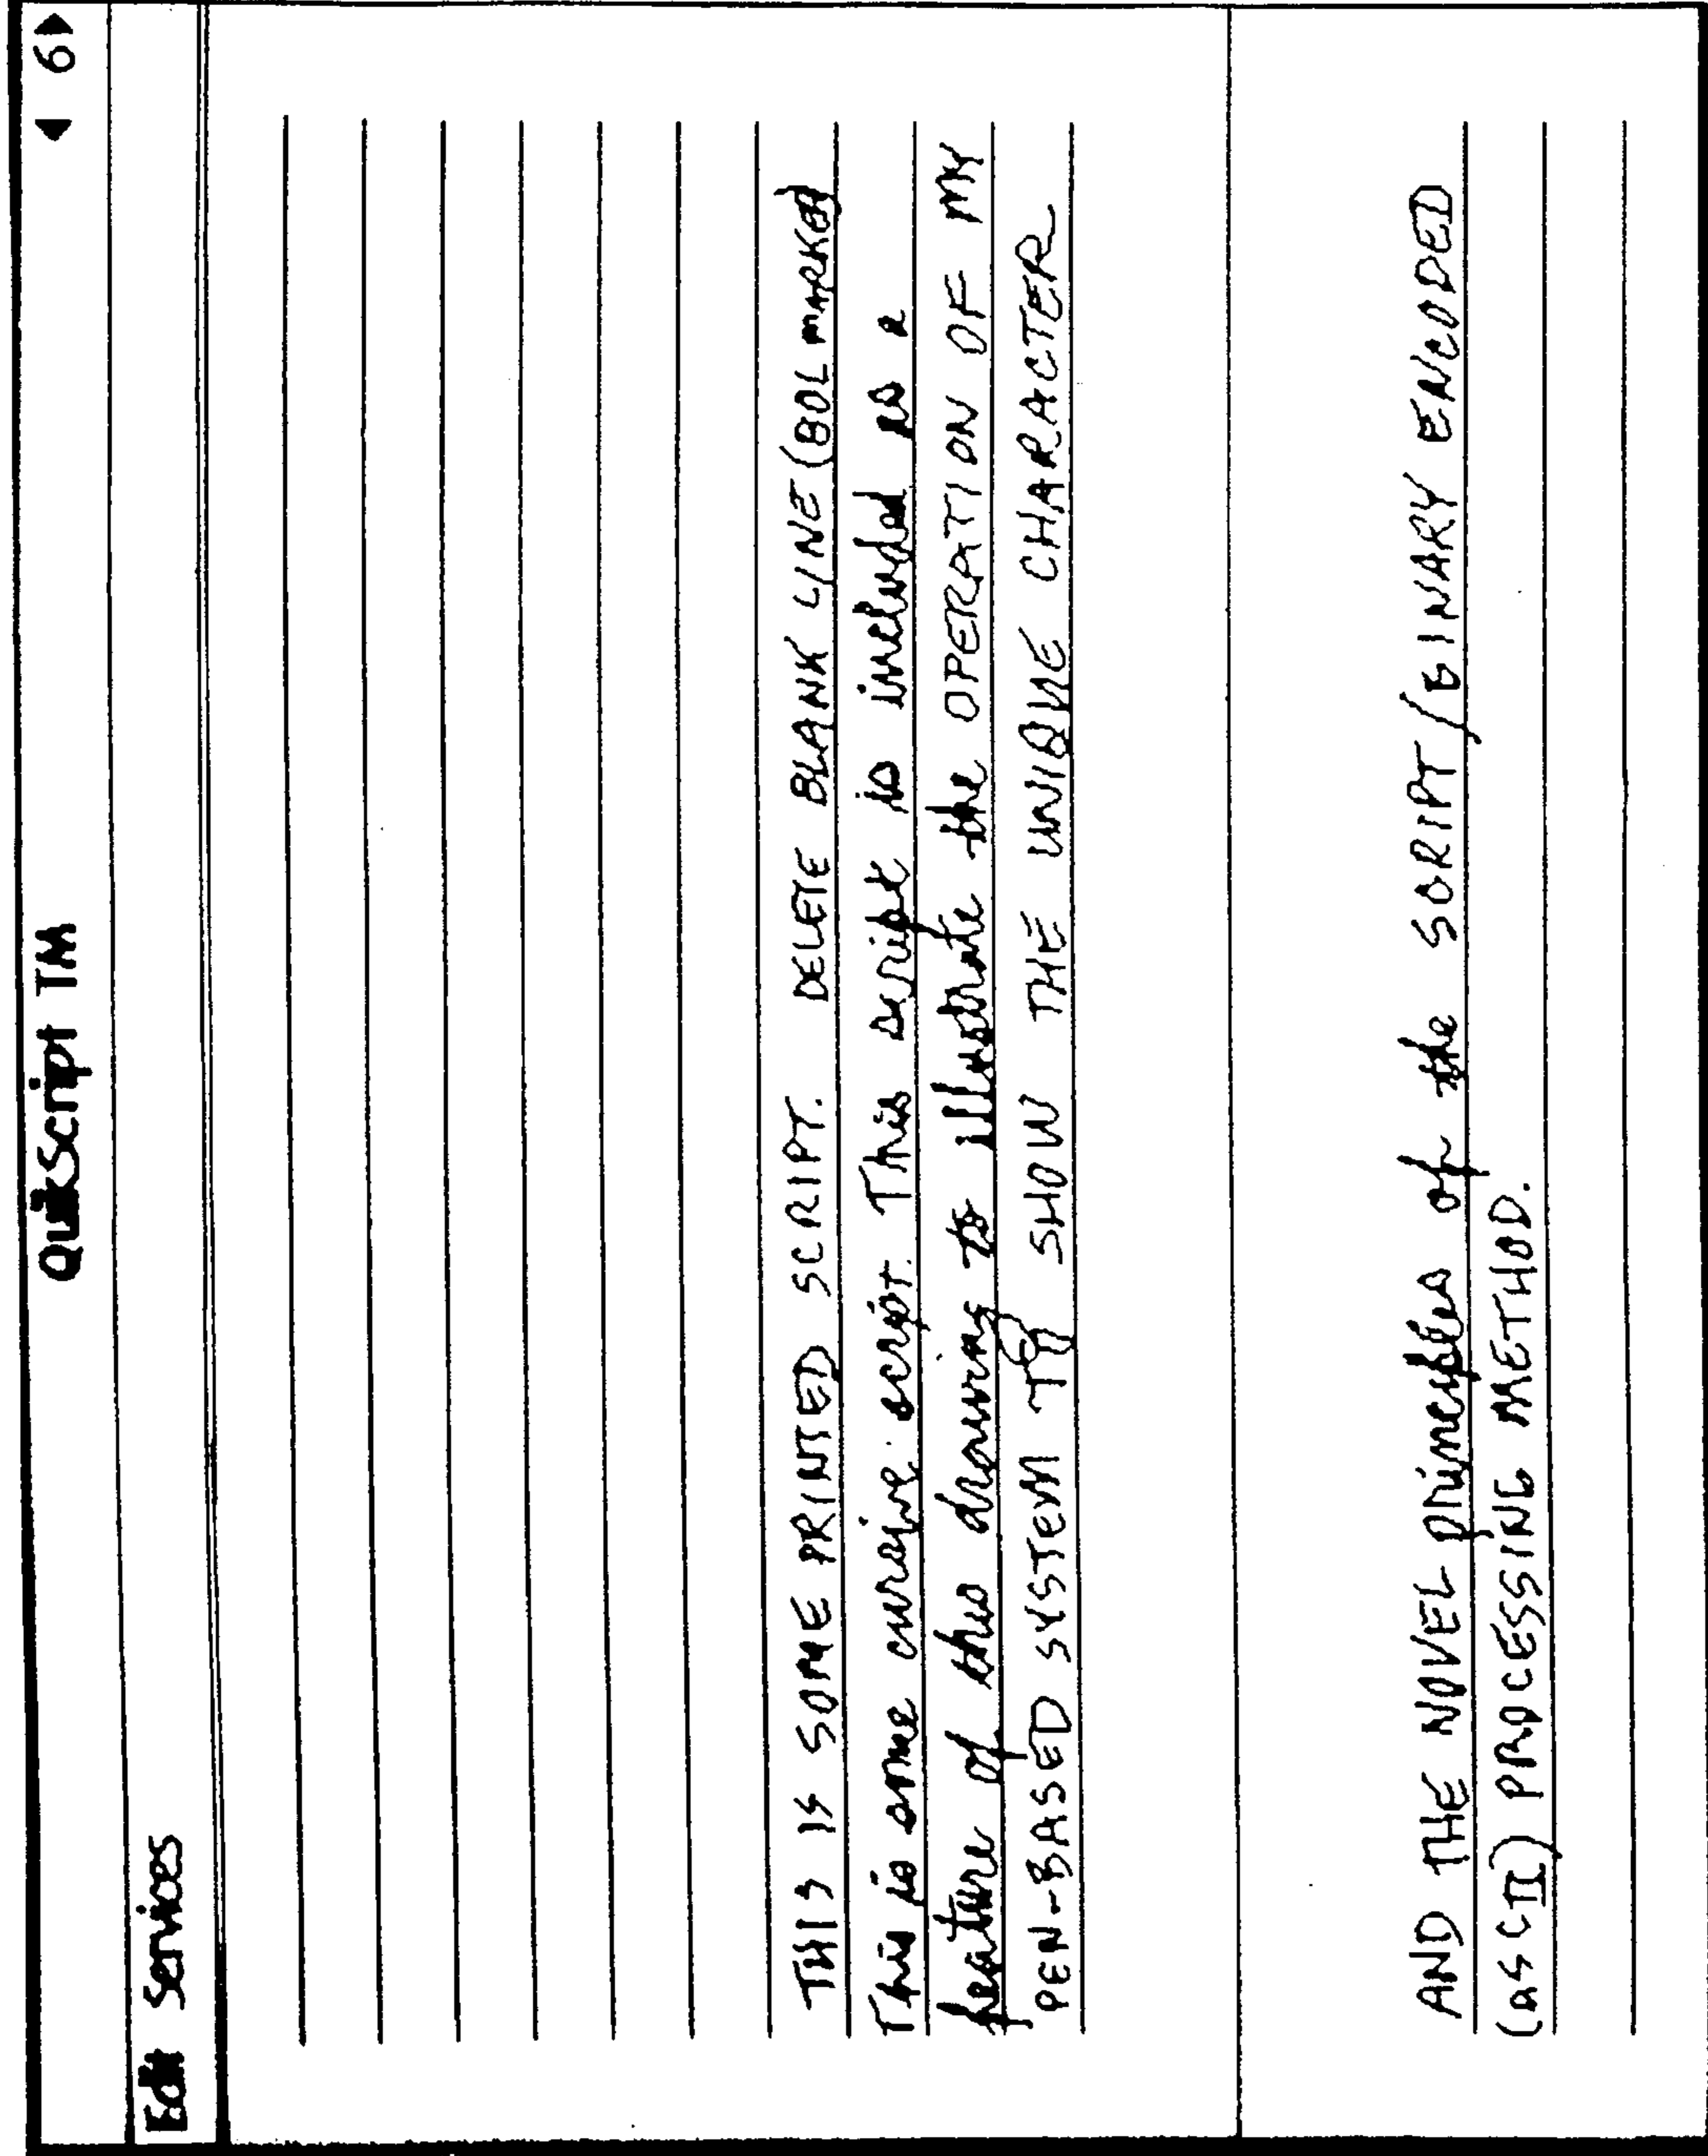 QuikScript TM
◀ 6 ▶
Edit Services
THIS IS SOME PRINTED SCRIPT. DELETE BLANK LINE (BOL MARKED)
This is some cursive script. This script is included as a
feature of this drawing to illustrate the OPERATION OF MY
PEN-BASED SYSTEM TO SHOW THE UNIQUE CHARACTER
AND THE NOVEL principles of the SCRIPT/BINARY ENCODED
(ASCII) PROCESSING METHOD.